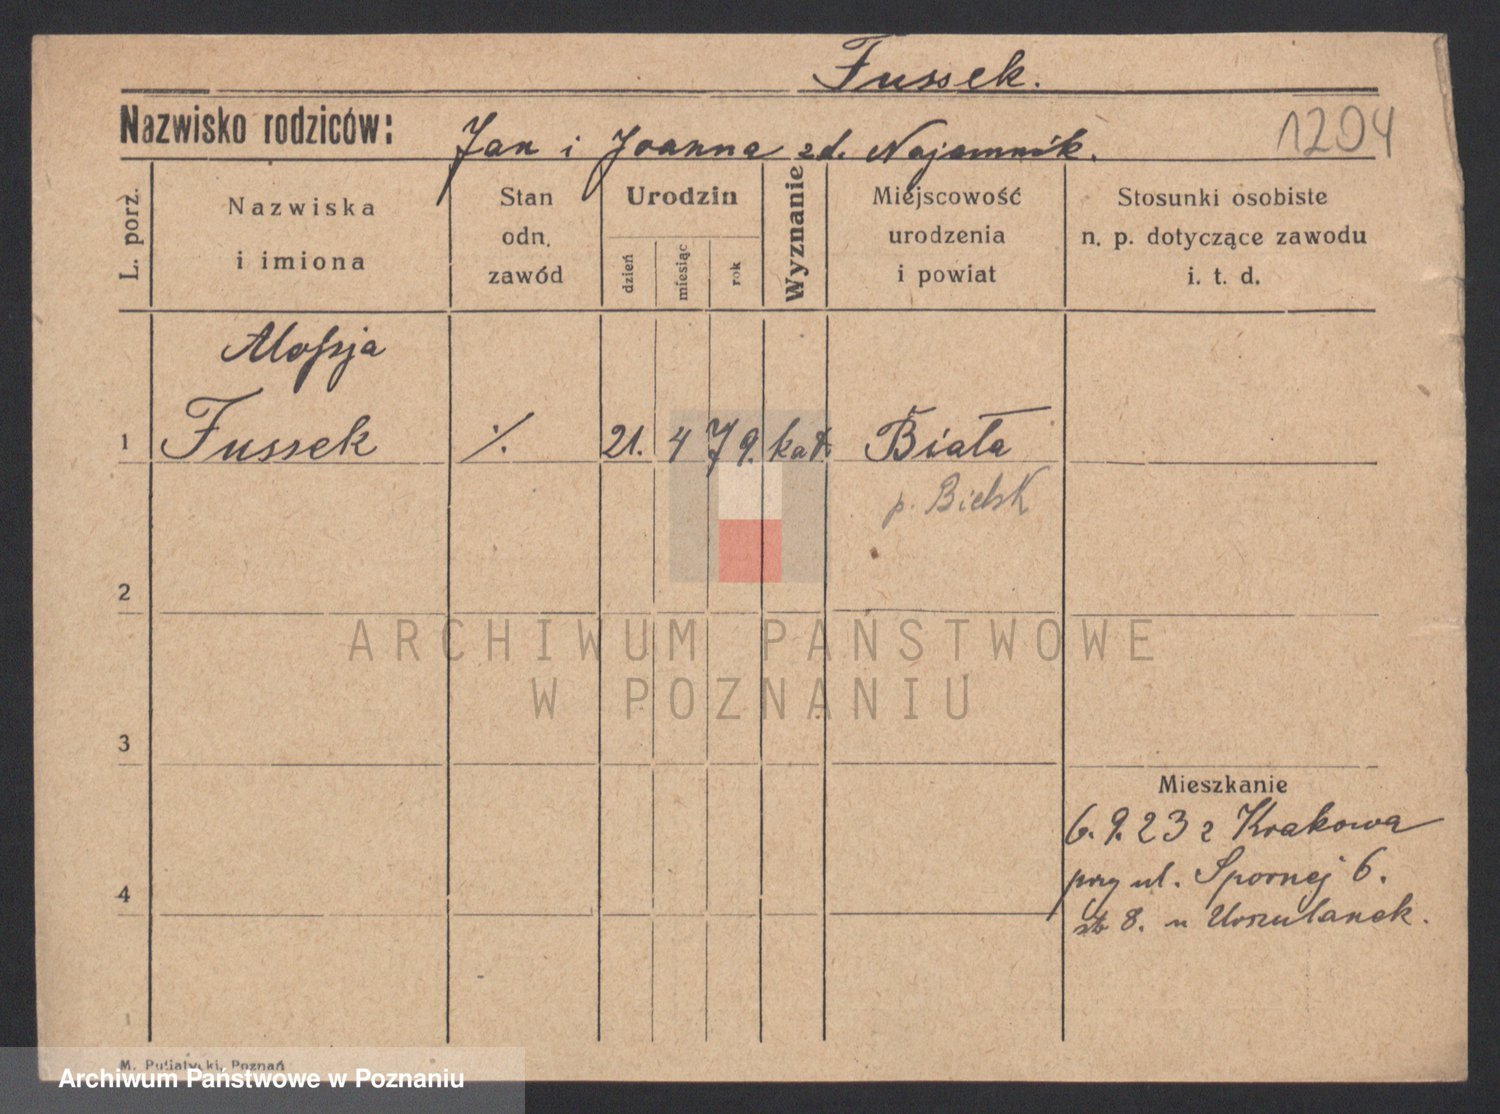 Fussek.
Nazwisko rodziców: Jan i Joanna zd. Najamnik.
1204
L. porz.
Nazwiska
i imiona
Stan
odn.
zawód
Urodzin
dzień
miesiąc
rok
Wyznanie
Miejscowość
urodzenia
i powiat
Stosunki osobiste
n. p. dotyczące zawodu
i. t. d.
Alojzja
1 Fussek ·/. 21. 4 79. kat. Biała
p. Bielsk
2
ARCHIWUM PAŃSTWOWE
W POZNANIU
3
Mieszkanie
6. 9. 23 z Krakowa
przy ul. Spornej 6.
4
8. u Urszulanek.
M. Putiatycki, Poznań
Archiwum Państwowe w Poznaniu